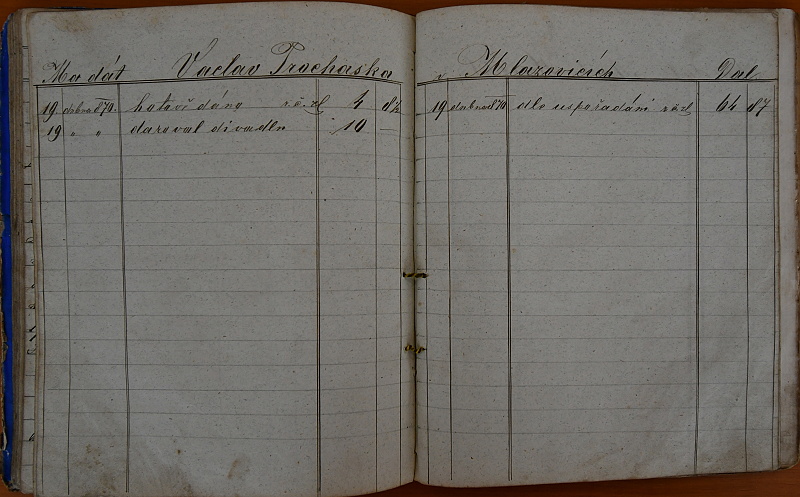 Ma dát Vaclav Prochaska
19 dubna 870. hotově dáno r.č. zl 4 82
19 " " daroval divadlu 10 —
v Mlazovicích Dal
19 dubna 870 dle uspořádání r č zl 64 87